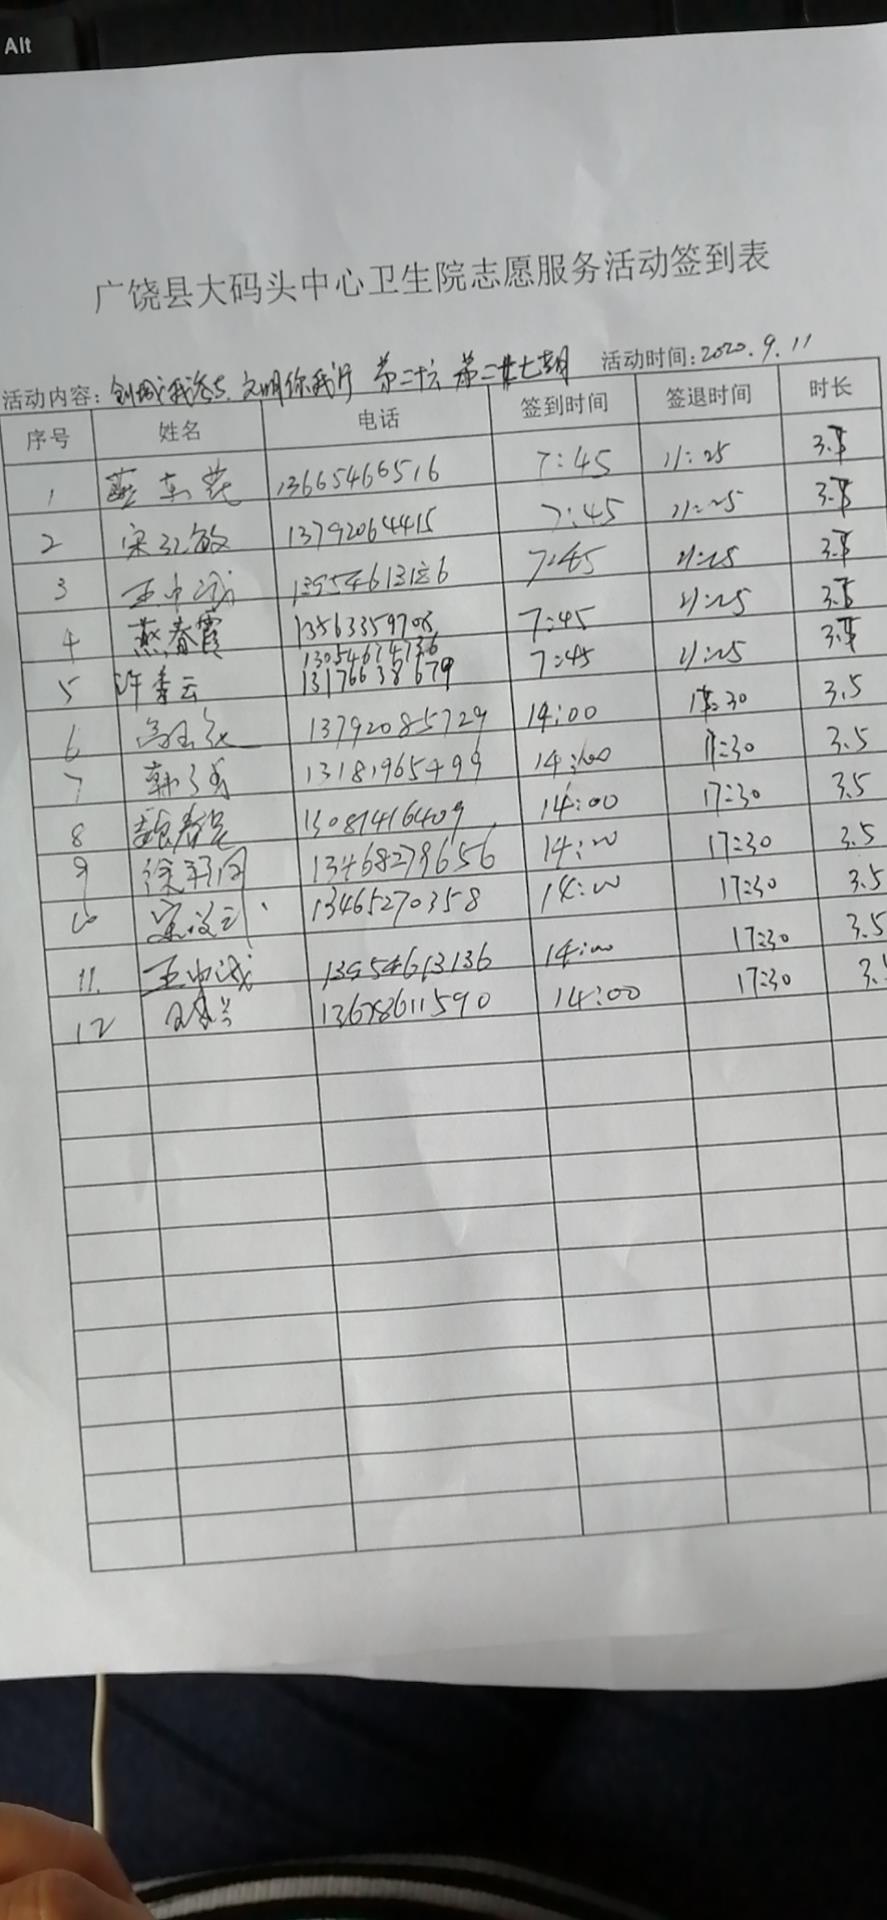 Alt
广饶县大码头中心卫生院志愿服务活动签到表
活动内容：创城我参与 文明你我行 第二十六 第二十七期 活动时间：2020.9.11
序号 姓名 电话 签到时间 签退时间 时长
1 13665466516 7:45 11:25 3.5
2 宋红敏 13792064415 7:45 11:25 3.5
3 王中成 7:45 11:25 3.5
4 燕春霞 13563359708 7:45 11:25 3.5
13054674736
5 许秀云 13176638679 7:45 11:25 3.5
6 13792085729 14:00 17:30 3.5
7 13181965499 14:00 17:30 3.5
8 魏春 13081416409 14:00 17:30 3.5
9 徐 13468279656 14:00 17:30 3.5
10 13465270358 14:00 17:30 3.5
11. 王中成 13954613136 14:00 17:30 3.5
12 13678611590 14:00 17:30 3.